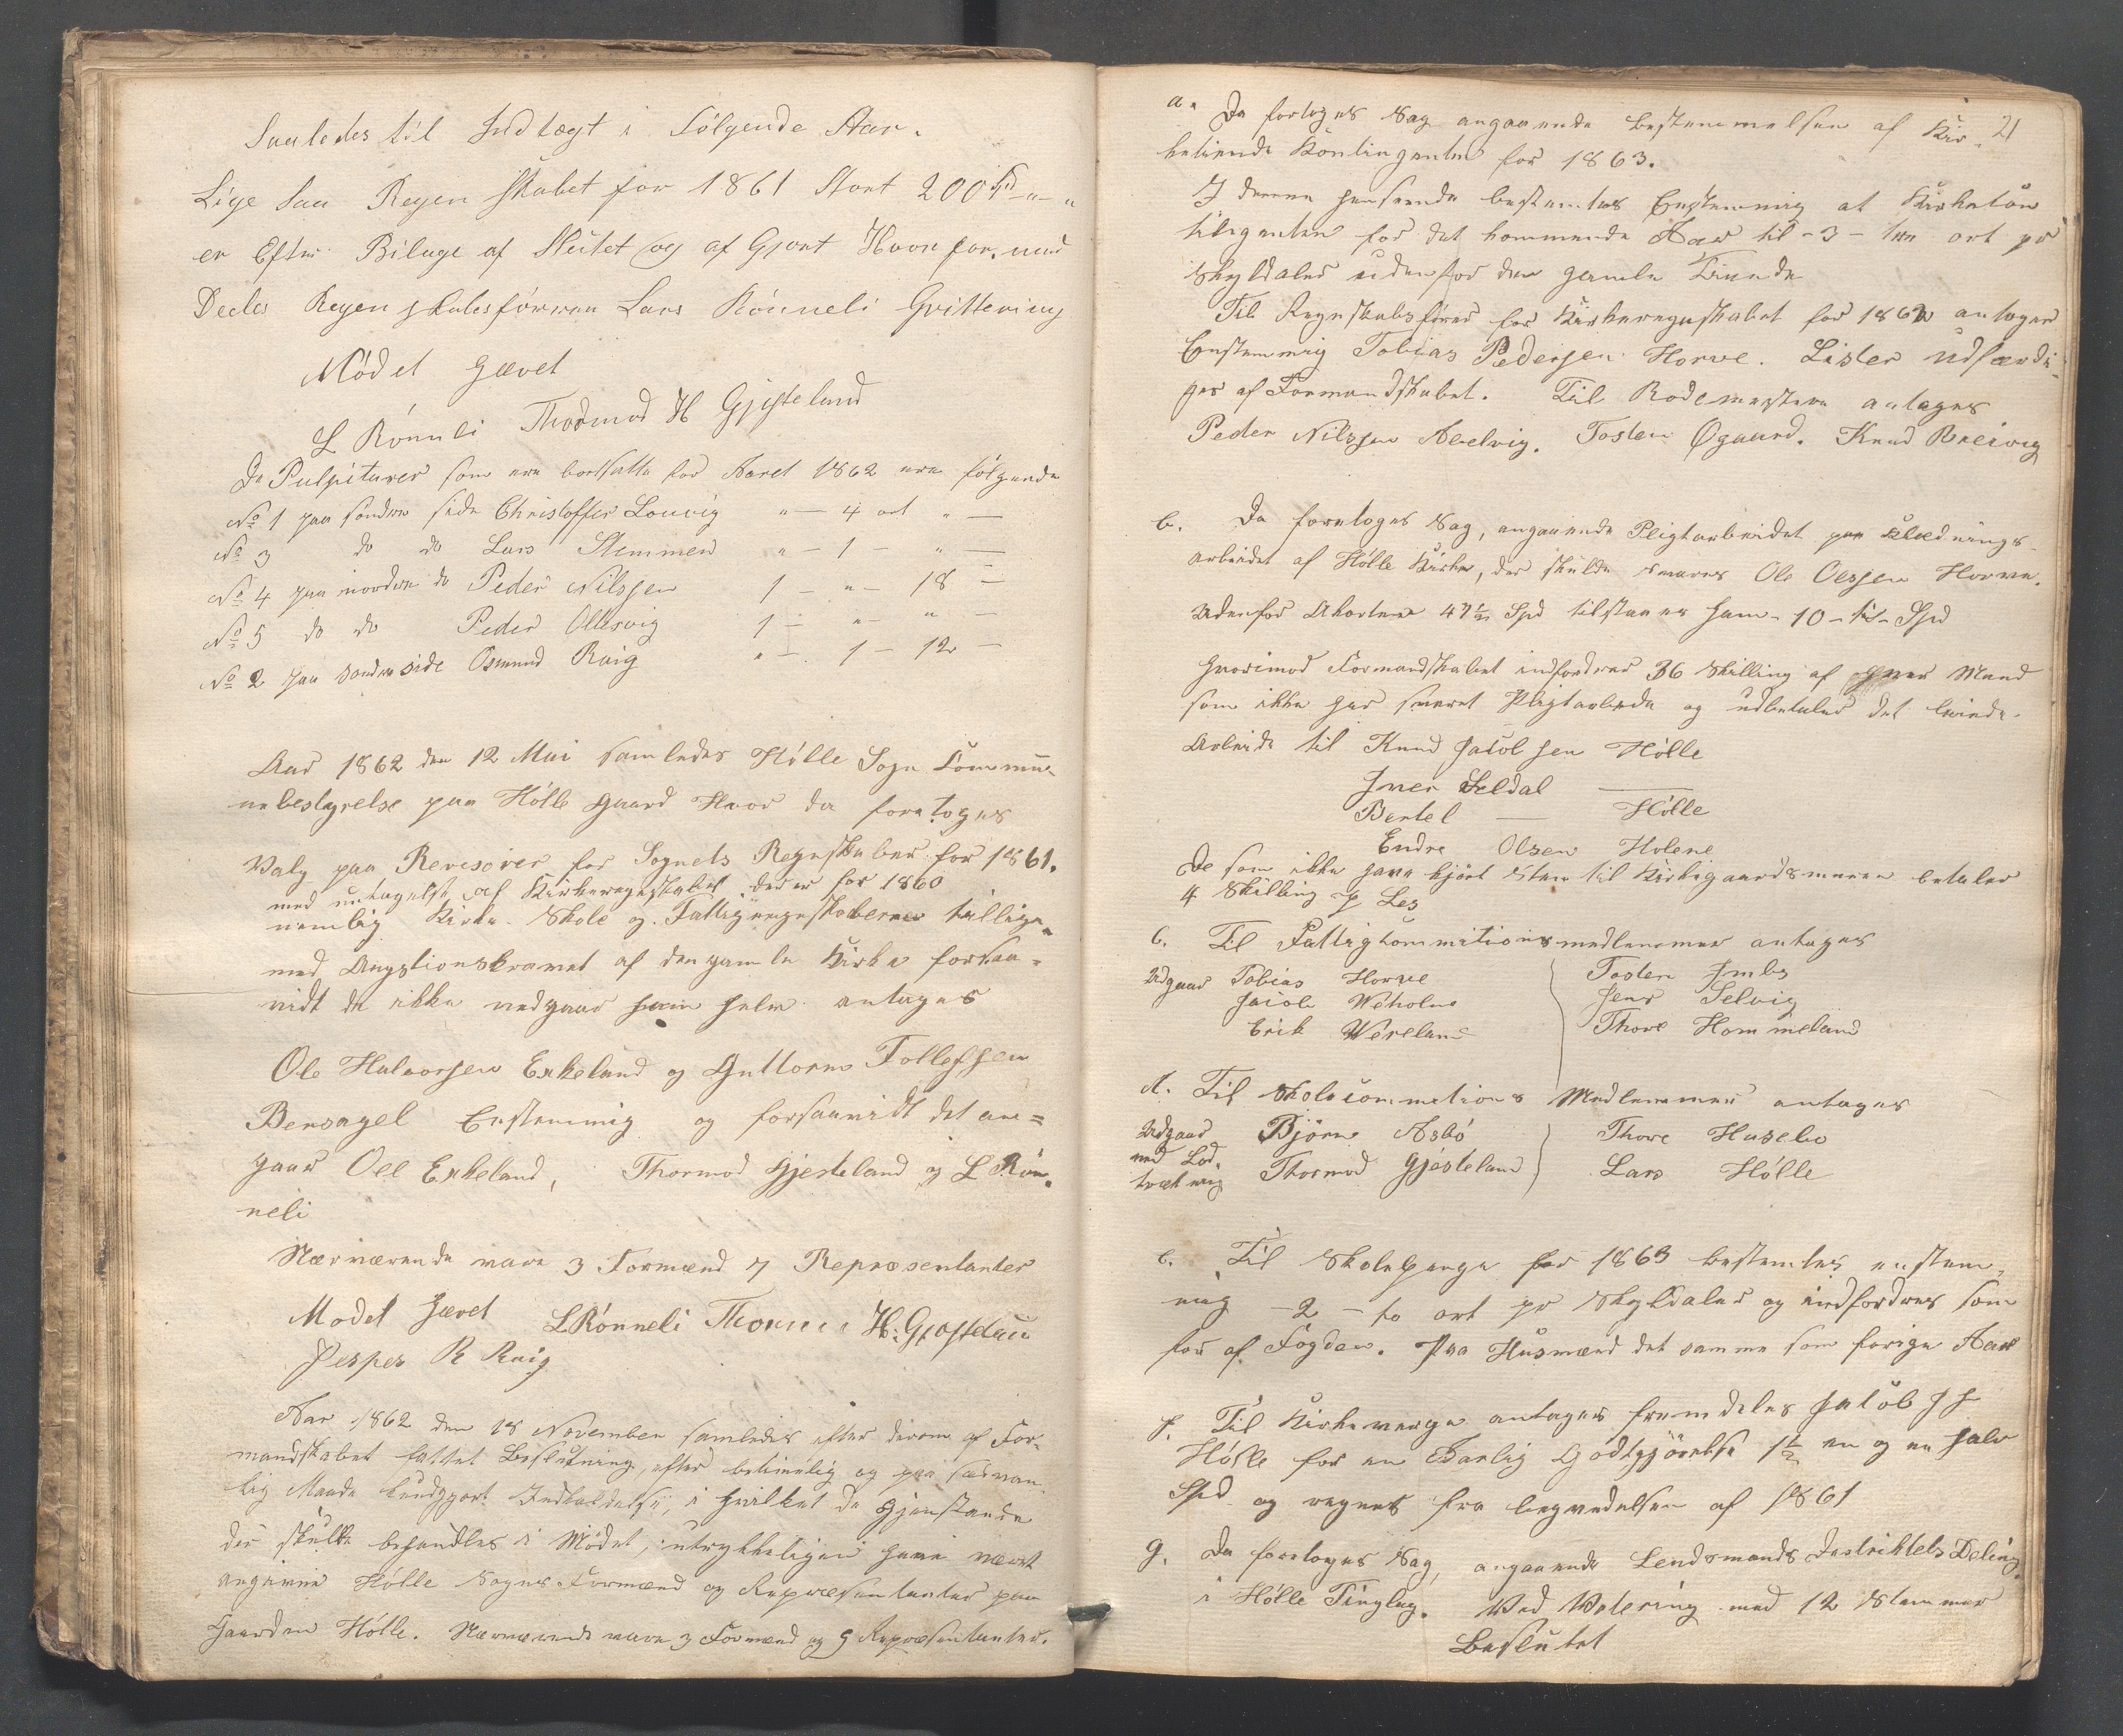 Saaledes til Indlægt i Følgende Aar.
Lige saa Regenskabet for 1861 Stort 200 Spd " "
er Efter Bilage af Slutet og af Gjort Hvorfor. med
Deeles Regenskabsførren Lars Rönneli Qvittering
Mödet Hævet
L Rönneli Thormod H Gjesteland
De Pulpiturer som ere bortsatte for Aaret 1862 ere følgende
No 1 paa söndre side Christoffer Louvig " — 4 ort " —
No 3 do do Lars Stemmen " — 1 — " —
No 4 paa nordre do Peder Nilssen 1 — " — 18 —
No 5 do do Peder Ollesvig 1 — " — " —
No 2 paa söndre side Osmund Raig " — 1 — 12 —
Aar 1862 den 12 Mai samledes Hölle Sogn Commu-
nebestyrelse paa Hölle Gaard Hvor da foretoges
Valg paa Revisorer for Sognets Regnskaber for 1861.
med untagelse af Kirkeregnskabet der er for 1860
nemlig Kirke- Skole og Fattigregnskaberne tillige-
med Augstionskravet af den gamle Kirke forsaa-
vidt de ikke vedgaar ham selv antages
Ole Halvorsen Erkeland og Guttorm Tollefsen
Bersagel Enstemmig og forsaavidt det an=
gaar Oll Erkeland, Thormod Gjesteland og L Rön-
neli
Nærværende vare 3 Formænd 7 Repræsentanter
Mödet Hævet L Rönneli Thormod H: Gjesteland
Jesper R Raig
Aar 1862 den 18 November samledes efter derom af For-
mandskabet fattet Beslutning, efter betimelig og paa sædvan-
lig Maade kundgjort Indkaldelse, i hvilket de Gjenstande
der skulle behandles i Mödet, utrykkeligen have været
angivne Hölle Sogns Formænd og Repræsentanter paa
Gaarden Hölle. Nærværende vare 3 Formænd og 9 Repræsentanter.
21
a. Da foretoges Sag angaaende bestemmelsen af Kir-
keliende Kontingenten for 1863.
I denne henseende bestemtes Enstemmig at Kirkekon
tingenten for det kommende Aar til - 3 - tre ort pr
Skyldaler udenfor den gamle Tiende
Til Regnskabsfører for Kirkeregnskabet for 1862 antoges
Enstemmig Tobias Pedersen Horve. Lister udfærdi-
ges af Formandskabet. Til Rodemestere antages
Peder Nilssen Aedelvig. Tosten Øgaard. Knud Breivig
b. Da foretoges Sag, angaaende Pligtarbeidet paa Klædnings-
arbeidet af Hölle Kirke, der skulde svares Ole Olssen Horve.
Udenfor Akorten 47½ Spd tilstaaes ham - 10 - ti - Spd
hvorimod Formandskabet indfordrer 36 Skilling af hver Mand
som ikke har svaret Pligtarbeide og udbetaler det
Arbeide til Knud Jacobsen Hölle
Iver Seldal —
Bertel — Hölle
Endre Olsen Holene
De som ikke have kjört Sten til Kirkegaardsmuren betaler
4 Skilling pr Les
c. Til Fattigkommitionsmedlemmer antages
Udgaar Tobias Horve Tosten Imbs
Jacob Weholm Jens Selvig
Erik Wereland Thore Hommeland
d. Til Skolecommetions Medlemmer antages
Udgaar Björn Asbö Thore Husebo
med Lod-
trækning Thormod Gjesteland Lars Hölle
e. Til Skolepenge for 1863 bestemtes enstem-
mig - 2 - to ort pr Skyldaler og indfordres som
för af Fogden. Paa Husmænd det samme som forige Aar
f. Til Kirkeverge antages fremdeles Jakob J J
Hölle for en Aarlig Godtgjörelse 1½ en og en halv
Spd og regnes fra begyndelsen af 1861
g. Da foretoges Sag, angaaende Lendsmands Destriktets Deling
i Hölle Tinglag. Ved Votering med 12 Stemmer
Beslutet